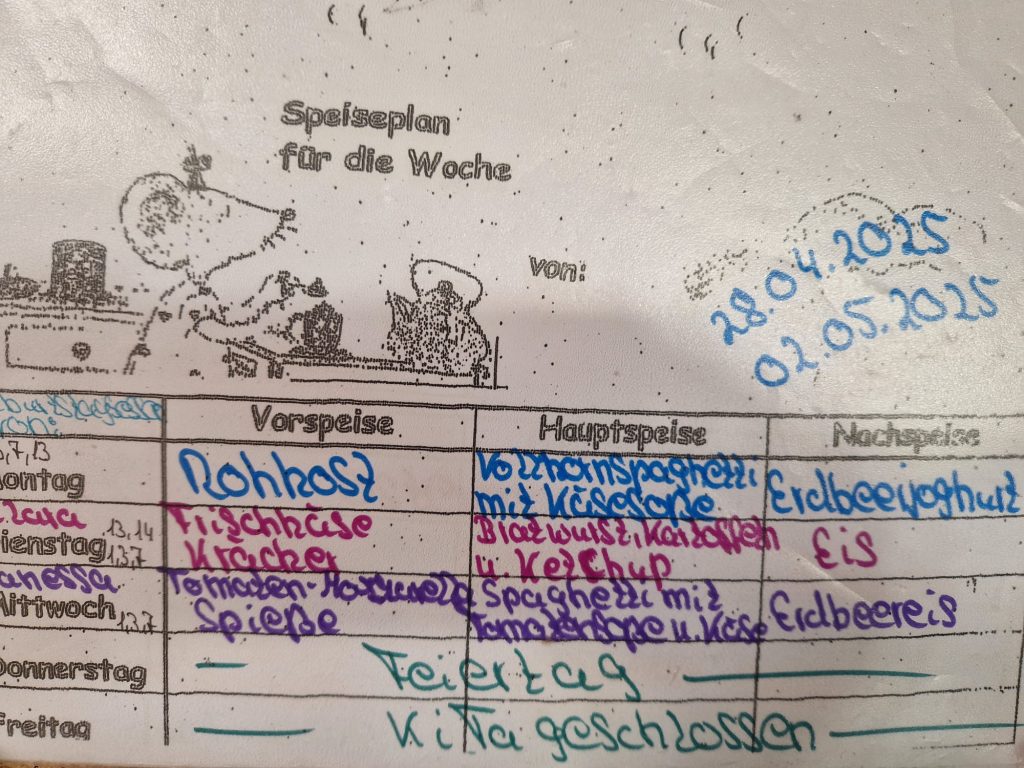 Speiseplan
für die Woche
von:
28.04.2025
02.05.2025
Vorspeise
Hauptspeise
Nachspeise
7,13
ontag
Rohkost
Vollkornspaghetti
mit Käsesoße
Erdbeerjoghurt
13,14
ienstag 13,7
Frischkäse
Kräcker
Bratwurst, Kartoffeln
u. Ketchup
Eis
anessa
Mittwoch 13,7
Tomaten-Mozzarella
Spieße
Spaghetti mit
Tomatensoße u. Käse
Erdbeereis
Donnerstag
Feiertag
Freitag
KiTa geschlossen